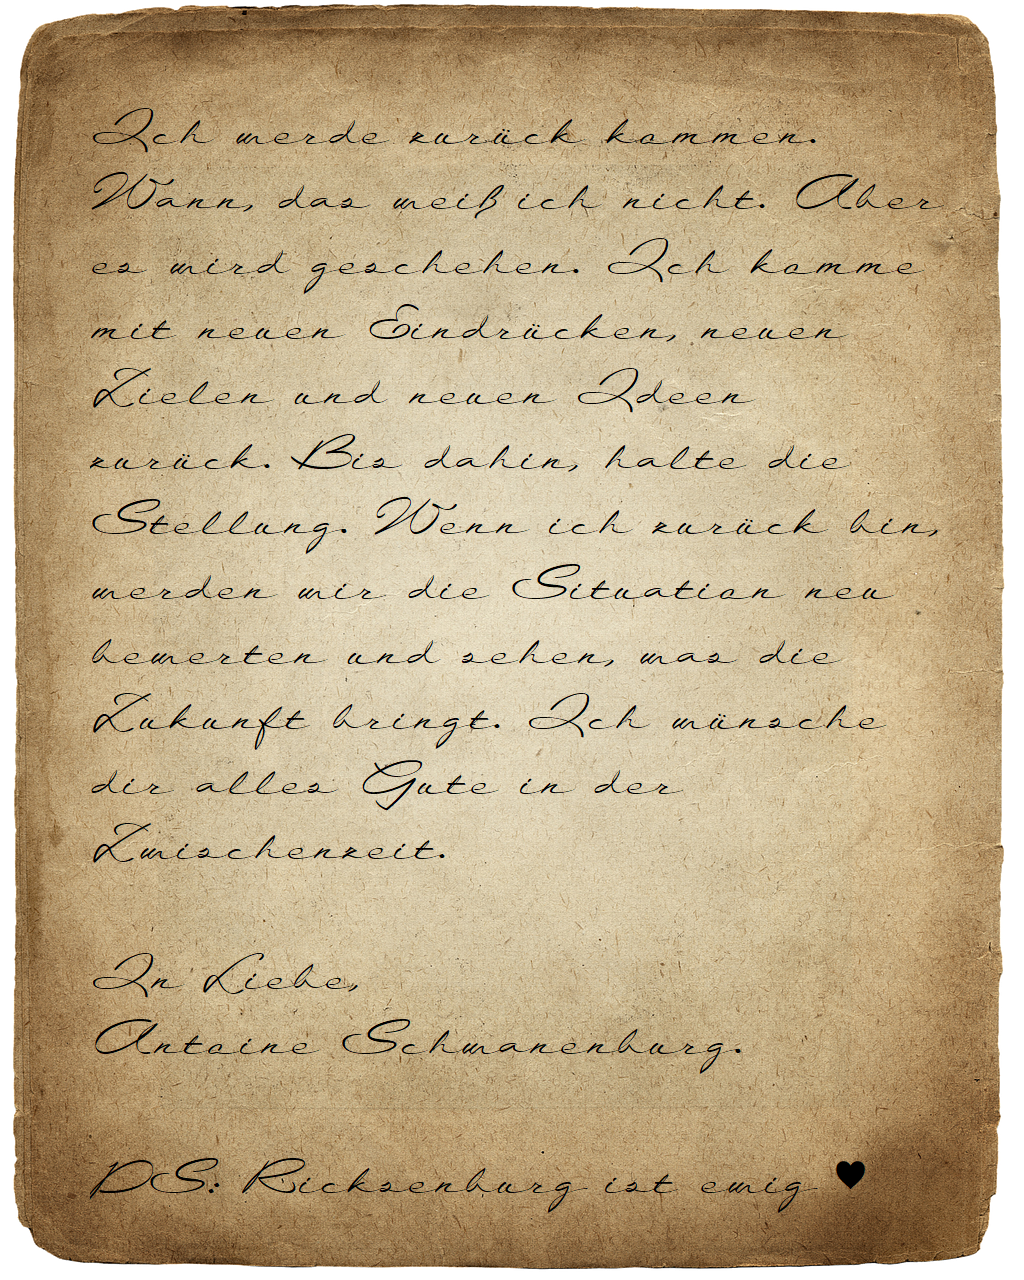 Ich werde zurück kommen.
Wann, das weiß ich nicht. Aber
es wird geschehen. Ich komme
mit neuen Eindrücken, neuen
Zielen und neuen Ideen
zurück. Bis dahin, halte die
Stellung. Wenn ich zurück bin,
werden wir die Situation neu
bewerten und sehen, was die
Zukunft bringt. Ich wünsche
dir alles Gute in der
Zwischenzeit.
In Liebe,
Antoine Schwanenburg.
PS: Ricksenburg ist ewig ♥